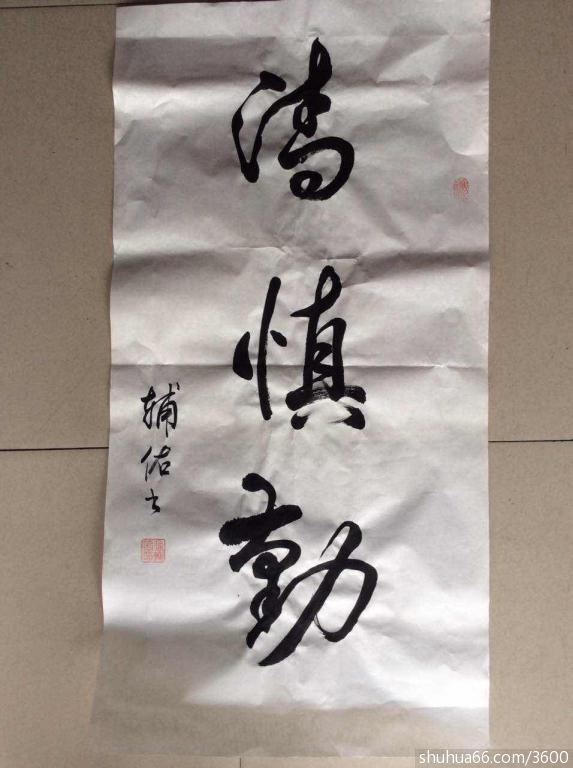 清慎勤
辅佑书
shuhua66.com/3600